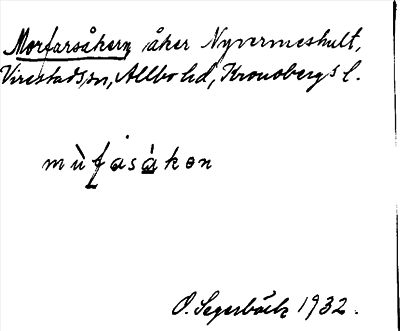 Morfarsåkern åker Nyvermeshult,
Virestads sn, Allbo hd, Kronobergs l.
mùfasåkɘn
O. Segerbäck 1932.